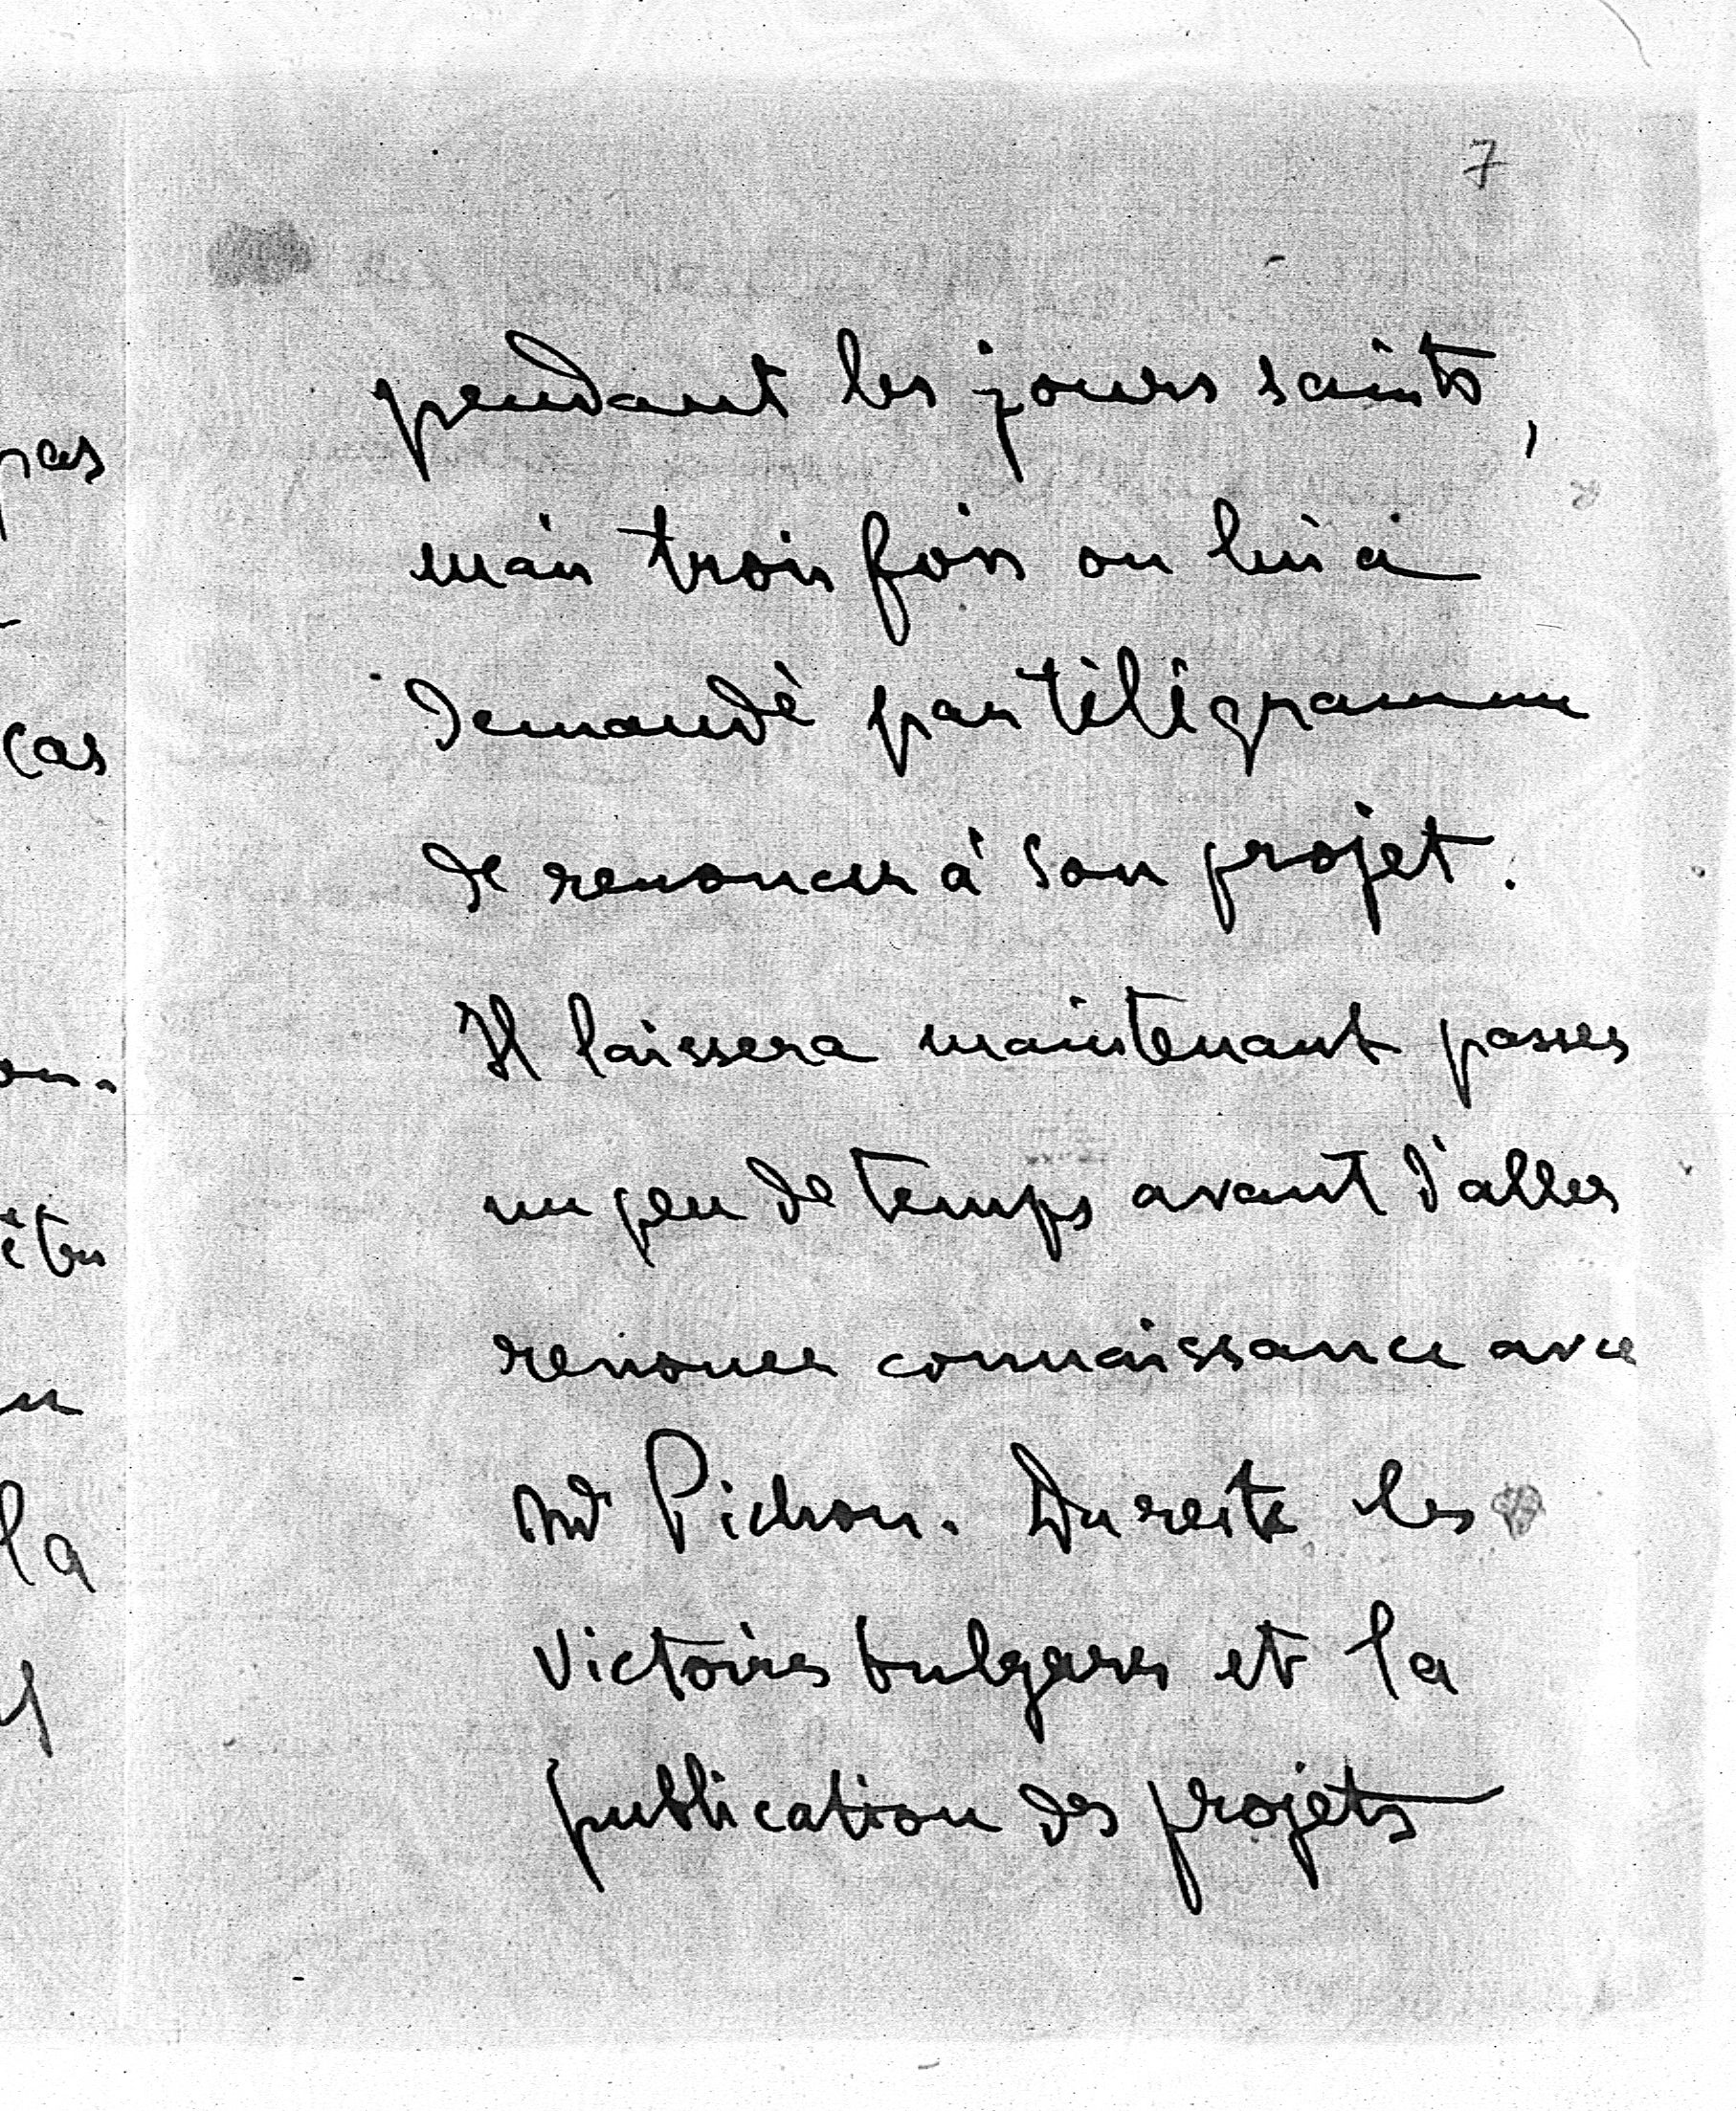 7
pendant les jours saints,
mais trois fois on lui a
demandé par télégramme
de renoncer à son projet.
Il laissera maintenant passer
un peu de temps avant d'aller
renouer connaissance avec
Pichon. Du reste les
victoires bulgares et la
publication des projets
pas
cas
la